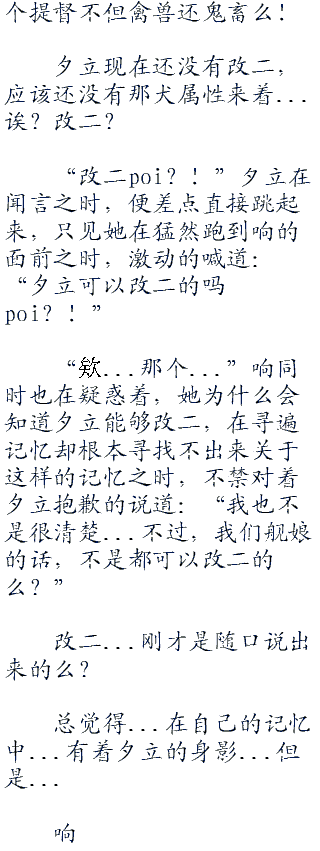 个提督不但禽兽还鬼畜么！
夕立现在还没有改二，
应该还没有那犬属性来着...
诶？改二？
“改二poi？！”夕立在
闻言之时，便差点直接跳起
来，只见她在猛然跑到响的
面前之时，激动的喊道：
“夕立可以改二的吗
poi？！”
“欸...那个...”响同
时也在疑惑着，她为什么会
知道夕立能够改二，在寻遍
记忆却根本寻找不出来关于
这样的记忆之时，不禁对着
夕立抱歉的说道：“我也不
是很清楚...不过，我们舰娘
的话，不是都可以改二的
么？”
改二...刚才是随口说出
来的么？
总觉得...在自己的记忆
中...有着夕立的身影...但
是...
响